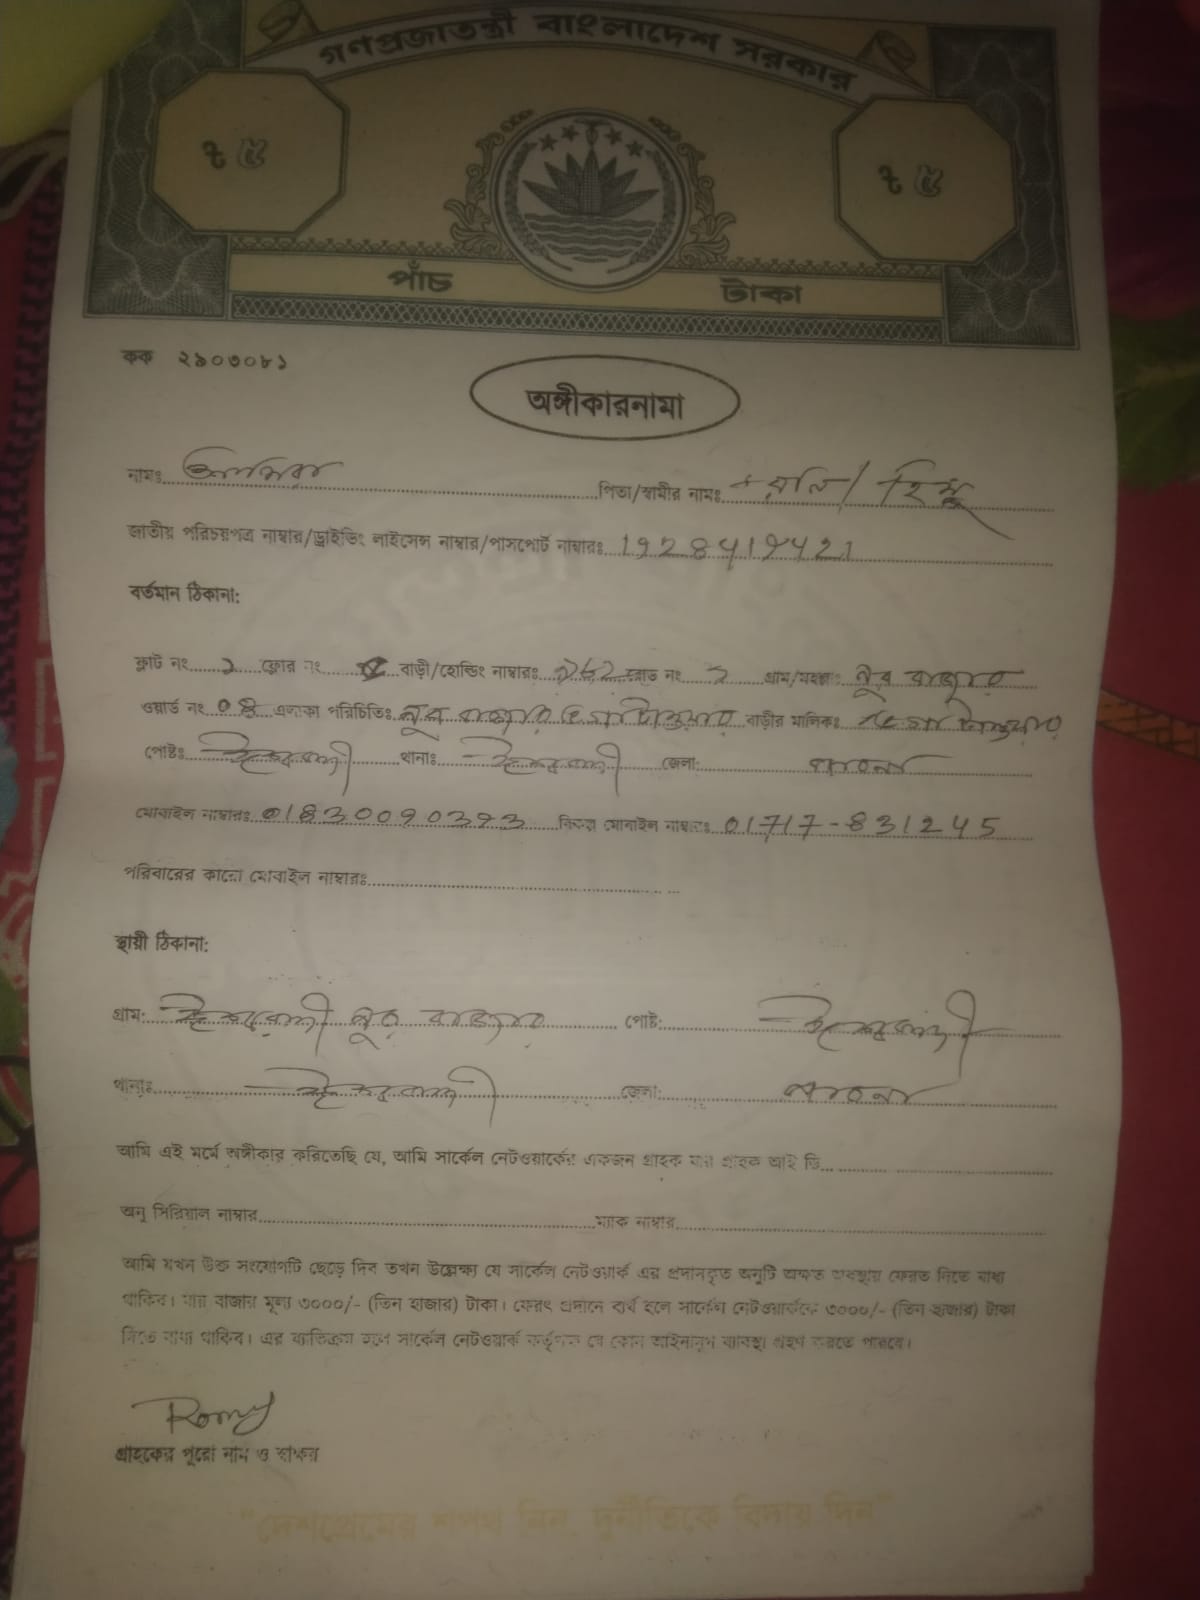 গণপ্রজাতন্ত্রী বাংলাদেশ সরকার
৳ ৫ ৳ ৫
পাঁচ টাকা
কক ২৯০৩০৮১
অঙ্গীকারনামা
নামঃ পিতা/স্বামীর নামঃ
জাতীয় পরিচয়পত্র নাম্বার/ড্রাইভিং লাইসেন্স নাম্বার/পাসপোর্ট নাম্বারঃ
বর্তমান ঠিকানা:
ফ্লাট নং ১ ফ্লোর নং বাড়ী/হোল্ডিং নাম্বারঃ রোড নং গ্রাম/মহল্লা: নুর বাজার
ওয়ার্ড নং ০৪ এলাকা পরিচিতিঃ নুর বাজার বাড়ীর মালিক:
পোষ্টঃ ঈশ্বরদী থানাঃ ঈশ্বরদী জেলা: পাবনা
মোবাইল নাম্বারঃ বিকল্প মোবাইল নাম্বারঃ 01717-831245
পরিবারের কারো মোবাইল নাম্বারঃ
স্থায়ী ঠিকানা:
গ্রাম: ঈশ্বরদী নুর বাজার পোষ্ট: ঈশ্বরদী
থানাঃ ঈশ্বরদী জেলা: পাবনা
আমি এই মর্মে অঙ্গীকার করিতেছি যে, আমি সার্কেল নেটওয়ার্কের একজন গ্রাহক যার গ্রাহক আই ডি
অনু সিরিয়াল নাম্বার ম্যাক নাম্বার
আমি যখন উক্ত সংযোগটি ছেড়ে দিব তখন উল্লেক্ষ্য যে সার্কেল নেটওয়ার্ক এর প্রদানকৃত অনুটি অক্ষত অবস্থায় ফেরত দিতে বাধ্য
থাকিব। যার বাজার মূল্য ৩০০০/- (তিন হাজার) টাকা। ফেরৎ প্রদানে ব্যর্থ হলে সার্কেল নেটওয়ার্ককে ৩০০০/- (তিন হাজার) টাকা
দিতে বাধ্য থাকিব। এর ব্যতিক্রম হলে সার্কেল নেটওয়ার্ক কর্তৃপক্ষ যে কোন আইনানুগ ব্যবস্থা গ্রহণ করতে পারবে।
Romy
গ্রাহকের পুরো নাম ও স্বাক্ষর
"দেশপ্রেমের শপথ নিন, দুর্নীতিকে বিদায় দিন"